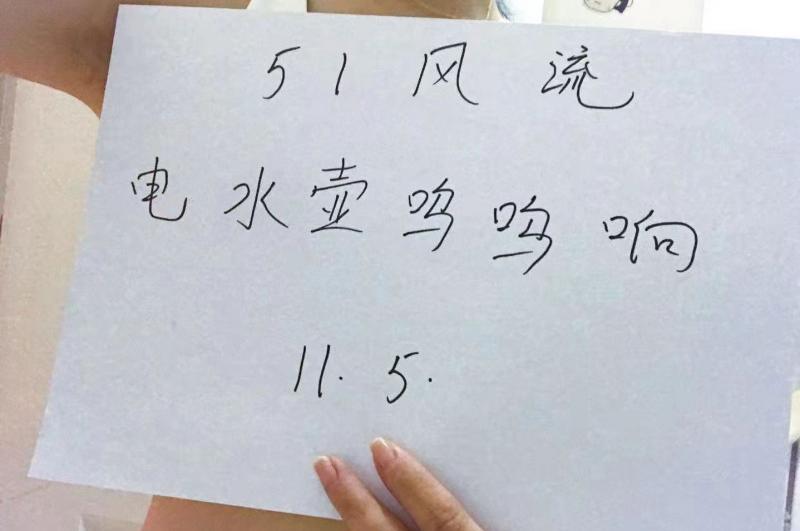 51风流
电水壶呜呜响
11.5.